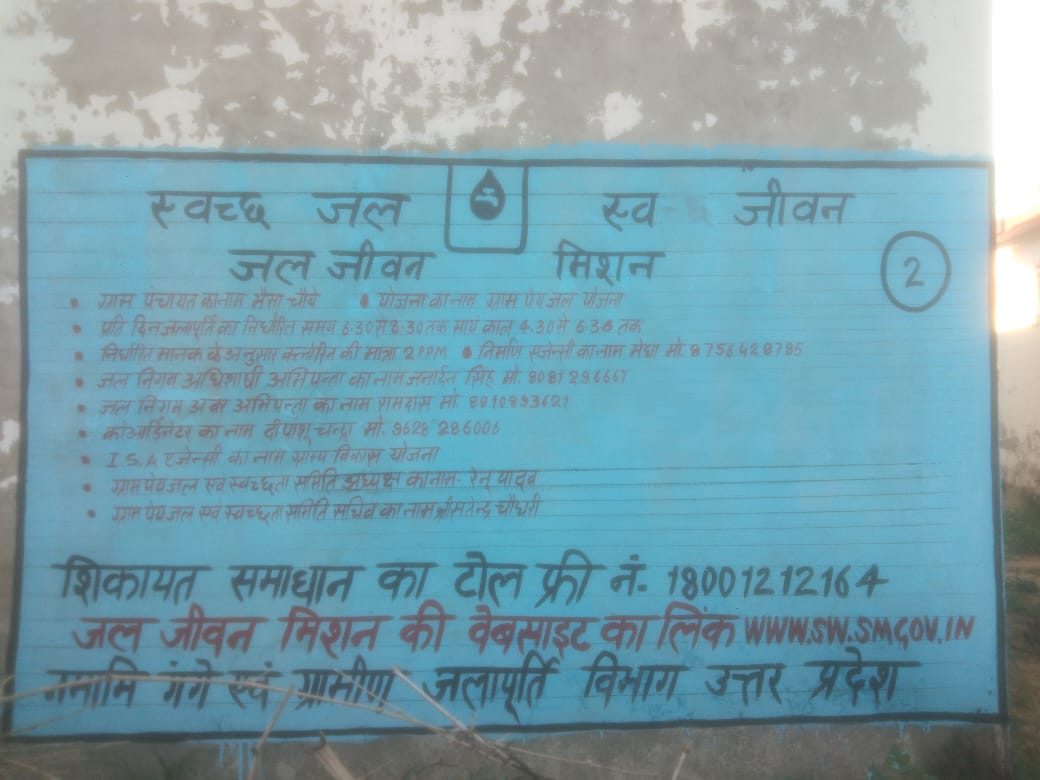 स्वच्छ जल स्व जीवन
जल जीवन मिशन
2
• ग्राम पंचायत का नाम भैसा चौबे • योजना का नाम ग्राम पेयजल योजना
• प्रति दिन जलापूर्ति का निर्धारित समय 6.30 से 8.30 तक सायं काल 4.30 से 6.30 तक
• निर्धारित मानक के अनुसार क्लोरिन की मात्रा 2 PPM • निर्माण एजेन्सी का नाम मेघा मो. 8756428785
• जल निगम अधिशाषी अभियन्ता का नाम जनार्दन सिंह मो. 8081296667
• जल निगम अवर अभियन्ता का नाम रामदास मो.
• कोआर्डिनेटर का नाम दीपांशू चन्द्रा मो. 9628 286006
• I.S.A एजेन्सी का नाम ग्राम्य विकास योजना
• ग्राम पेयजल एवं स्वच्छता समिति अध्यक्ष का नाम- रेनू यादव
• ग्राम पेयजल एवं स्वच्छता समिति सचिव का नाम श्री सतेन्द्र चौधरी
शिकायत समाधान का टोल फ्री नं. 18001212164
जल जीवन मिशन की वेबसाइट का लिंक WWW.SW.SMGOV.IN
नमामि गंगे एवं ग्रामीण जलापूर्ति विभाग उत्तर प्रदेश